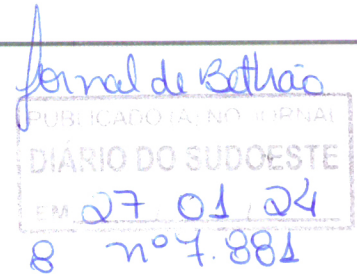 Jornal de Beltrão
PUBLICADO(A) NO JORNAL
DIÁRIO DO SUDOESTE
EM 27 01 24
8 nº 7.881